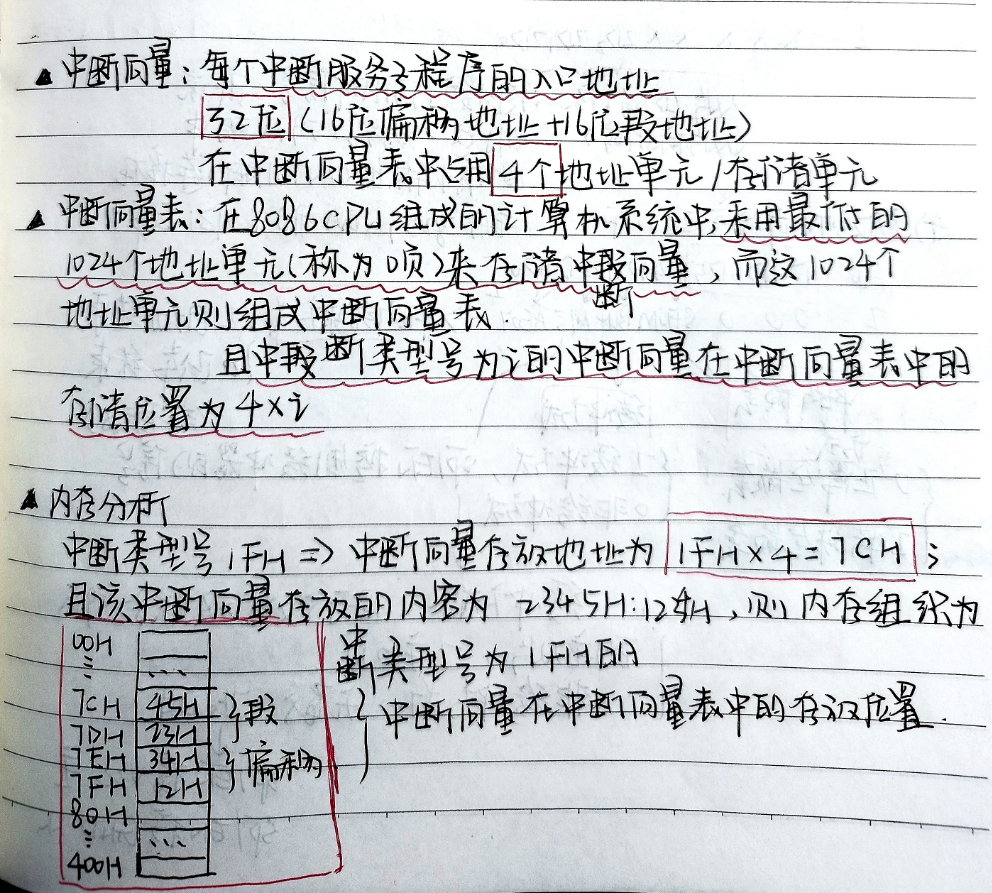 ▲ 中断向量：每个中断服务子程序的入口地址
32位（16位偏移地址+16位段地址）
在中断向量表中占用4个地址单元/存储单元
▲ 中断向量表：在8086CPU组成的计算机系统中，采用最低的
1024个地址单元（称为0页）来存储中断向量，而这1024个
地址单元则组成中断向量表.
且中断类型号为i的中断向量在中断向量表中的
存储位置为4×i
▲ 内存分析
中断类型号1FH => 中断向量存放地址为 1FH×4=7CH；
且该中断向量存放的内容为 2345H:1234H，则内存组织为
00H
⋮ ...
7CH 45H } 段
7DH 23H
7EH 34H } 偏移
7FH 12H
80H
⋮ ...
400H
中断类型号为1FH的
中断向量在中断向量表中的存放位置.